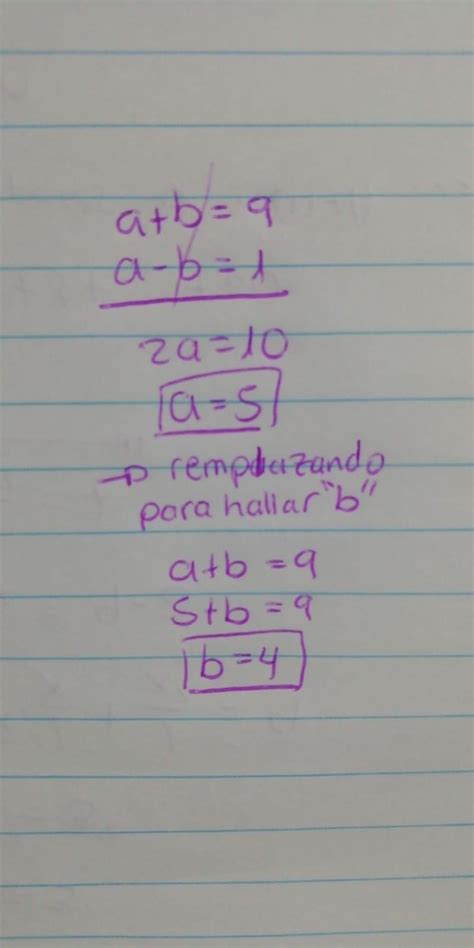 a+b=9
a-b=1
2a=10
a=5
→ remplazando
para hallar "b"
a+b=9
5+b=9
b=4